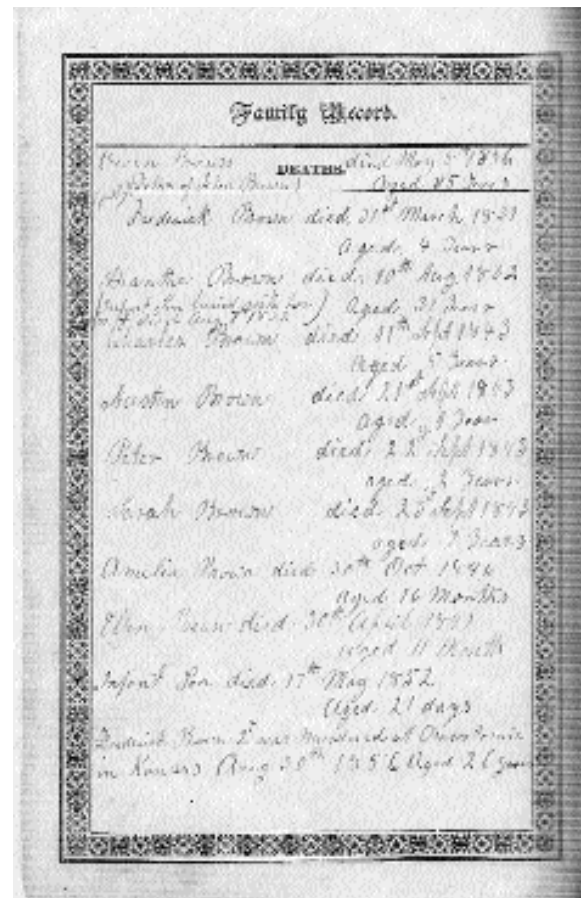 Family Record.
DEATHS. died May 8th 1856
(Father of John Brown) Aged 85 Years
Frederick Brown died 31st March 1831
Aged 4 Years
Dianthe Brown died 10th Aug 1832
(Infant Son buried with her Aged 31 Years
Aug 7 1832)
Charles Brown died 11th Sept 1843
Aged 5 Years
Austin Brown died 21st Sept 1843
Aged 1 Year
Peter Brown died 22 Sept 1843
aged 2 Years
Sarah Brown died 23 Sept 1843
aged 9 Years
Amelia Brown died 30th Oct 1846
Aged 16 Months
Ellen Brown died 30th April 1849
Aged 11 Month
Infant Son died 17th May 1852
Aged 21 days
Frederick Brown 2d was Murdered at Osawatomie
in Kansas Aug 30th 1856 Aged 26 years